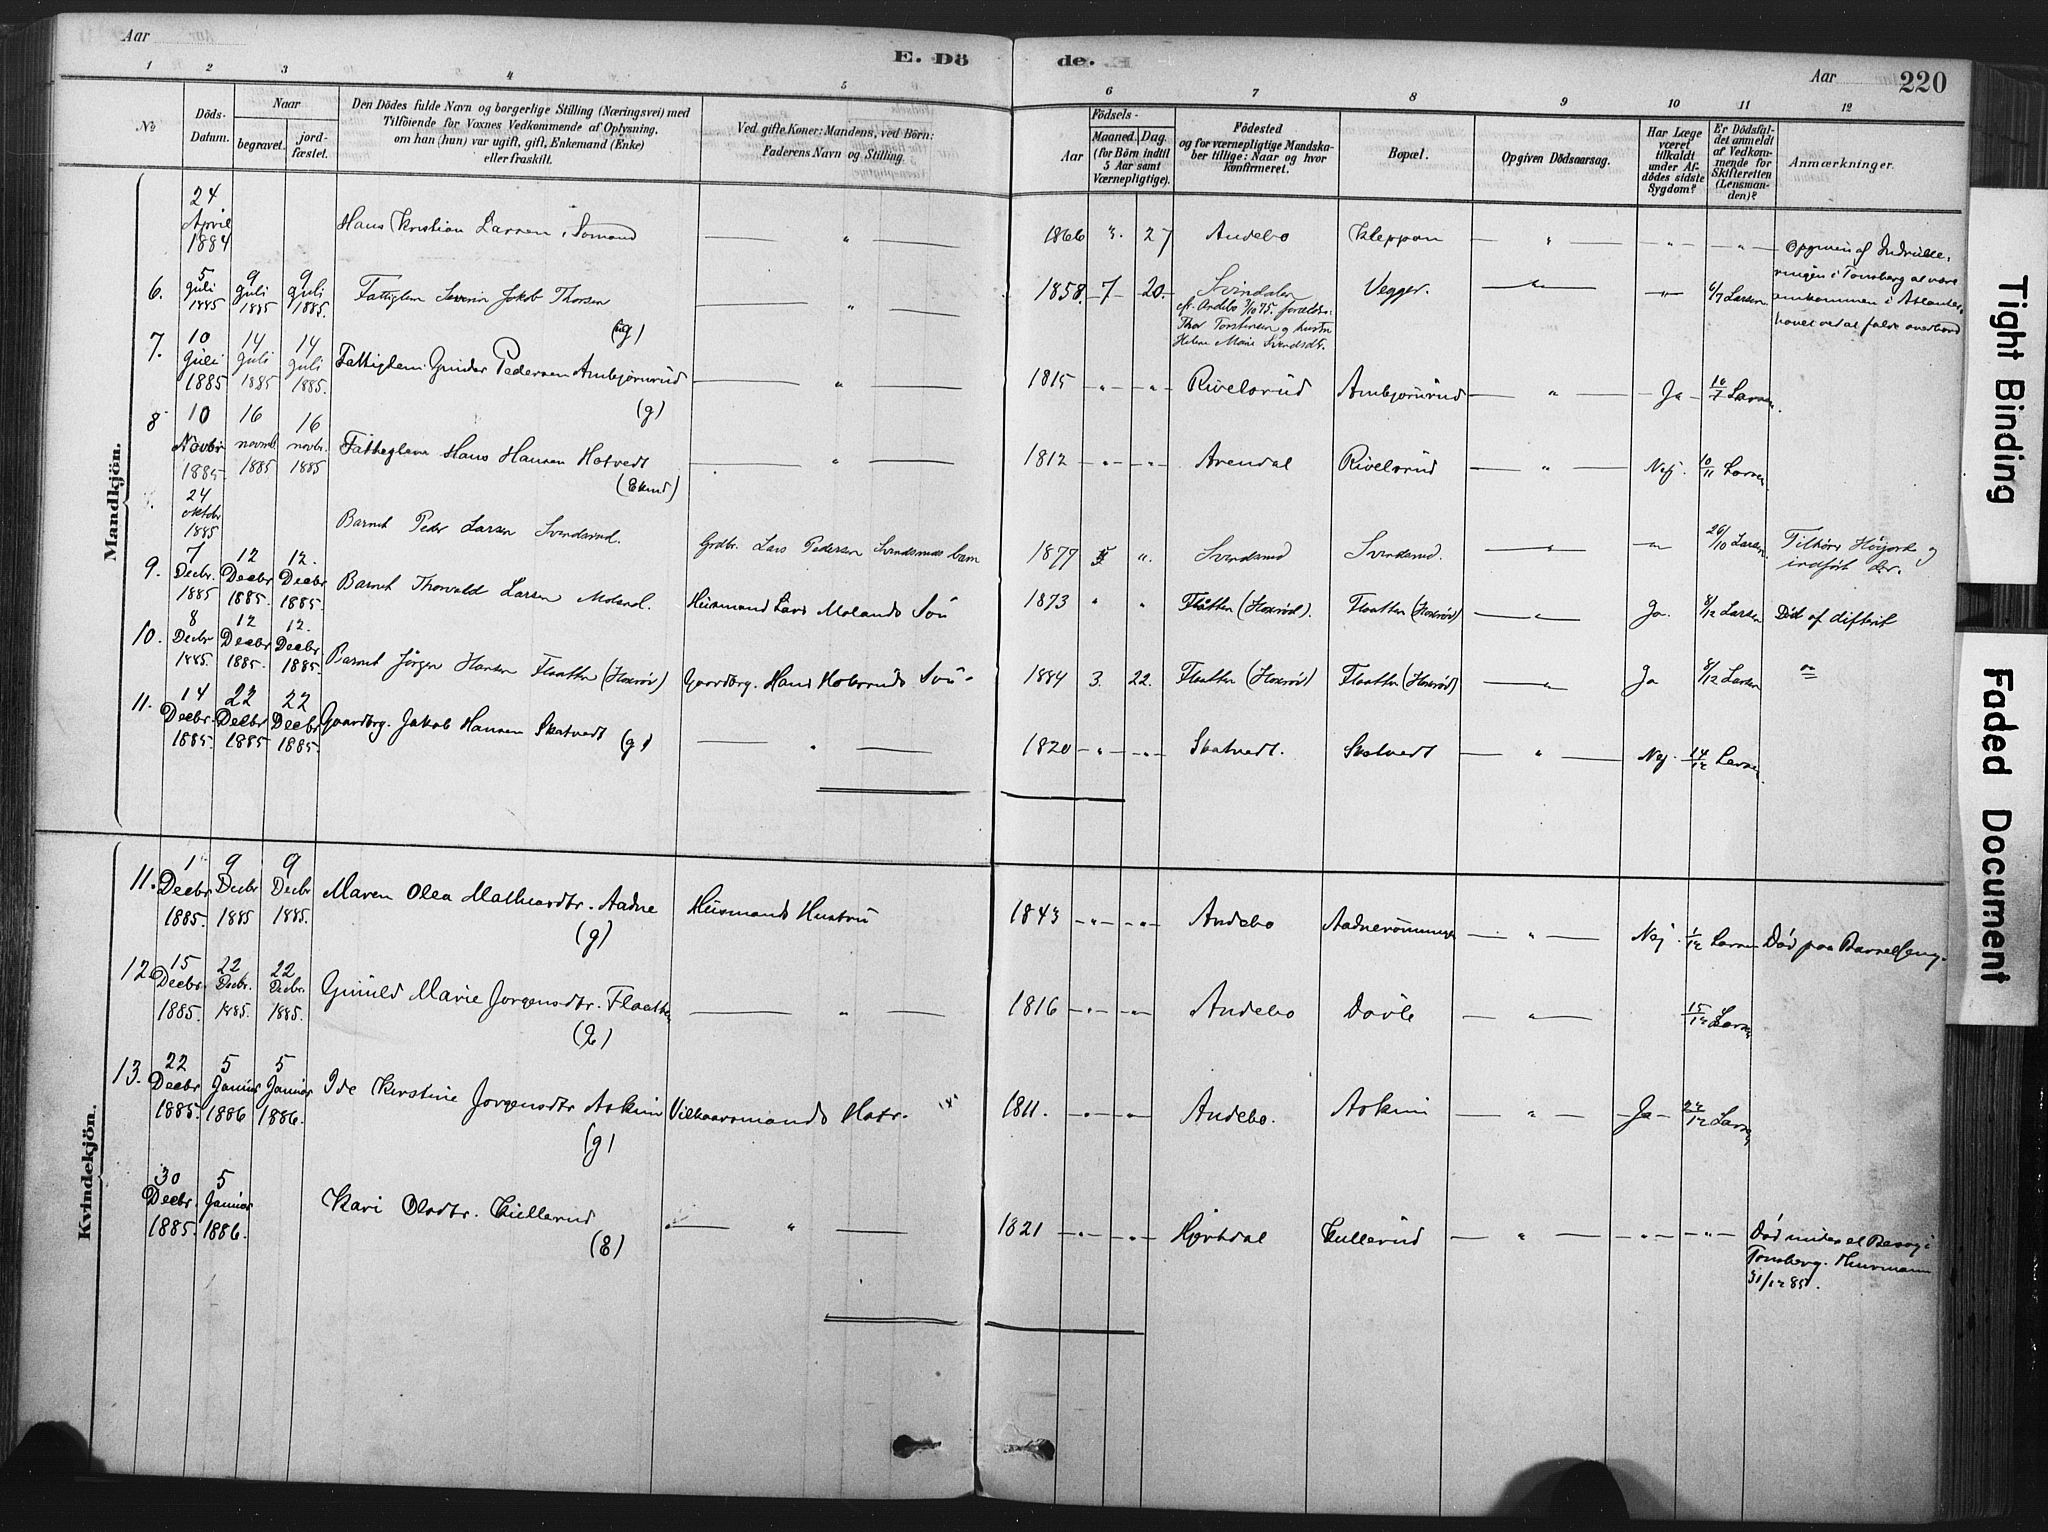 Aar
E. Dö
de.
Aar
220
1 2 3 4 5 6 7 8 9 10 11 12
No
Döds-
Datum.
Naar
begravet.
jord-
fæstet.
Den Dödes fulde Navn og borgerlige Stilling (Næringsvei) med
Tilföiende for Voxnes Vedkommende af Oplysning,
om han (hun) var ugift, gift, Enkemand (Enke)
eller fraskilt.
Ved gifte Koner: Mandens, ved Börn:
Faderens Navn og Stilling.
Födsels-
Aar
Maaned.
Dag.
(for Börn indtil
5 Aar samt
Værnepligtige).
Födested
og for værnepligtige Mandska-
ber tillige: Naar og hvor
konfirmeret.
Bopæl.
Opgiven Dödsaarsag.
Har Læge
været
tilkaldt
under Af-
dödes sidste
Sygdom?
Er Dödsfal-
det anmeldt
af Vedkom-
mende for
Skifteretten
(Lensman-
den)?
Anmærkninger.
Mandkjön.
24 April 1884 Hans Kristian Larsen, Sømand — " — 1866 3. 27 Andebo Kleppan — " — — " — — " — Opgiven af Indrulle-
ringen i Tønsberg at være
omkommen i Atlanter-
havet ved at falde overbord
6. 5 Juli 1885 9 Juli 1885 9 Juli 1885. Fattiglem Severin Jakob Thorsen (ug) — " — 1858. 7 20. Svindalen Vegger. — " — — " — 6/7 Larsen
kf. Andebo 3/10 75. Forældre:
Thor Torstensen og hustru
Helene Marie Svendsdt.
7. 10 Juli 1885 14 Juli 1885 14 Juli 1885. Fattiglem Gunder Pedersen Ambjørnrud (g) — " — 1815 " " Rivelsrud Ambjørnrud — " — Ja 10/7 Larsen.
8 10 Novbr 1885. 16 novmb 1885 16 novbr. 1885 Fattiglem Hans Hansen Hotvedt (Ekmd) — " — 1812 " " Arendal Rivelsrud — " — Nej. 10/11 Larsen.
24 oktober 1885 Barnet Peder Larsen Svindsrud. Grdbr. Lars Pedersen Svindsruds barn 1877 " Svindsrud Svindsrud. — " — — " — 26/10 Larsen Tilhører Høijord og
indført der.
9. 7 Decbr. 1885 12 Decbr 1885. 12. Decbr 1885. Barnet Thorvald Larsen Moland. Husmand Lars Molands Søn 1873 " " Flåtten (Hoxrød). Flaatten (Hoxrød) — " — Ja. 8/12 Larsen Død af difterit
10. 8 Decbr 1885. 12 Decbr 1885. 12. Decbr 1885. Barnet Jörgen Hansen Flaatten (Hoxrød) Gaardbrg. Hans Søn. 1884 3. 22. Flaatten (Hoxrød) Flaatten (Hoxrød) — " — Ja 8/12 Larsen "
11. 14 Decbr. 1885. 22 Decbr 1885 22 Decbr 1885. Gaardbrg. Jakob Hansen Skatvedt (g) — " — 1820 " " Skatvedt. Skatvedt — " — Nej. 14/12 Larsen.
Kvindekjön.
11. 1 Decbr 1885. 9 Decbr 1885 9 Decbr 1885. Maren Olea Mathiasdtr. Aadne (g) Husmands Hustru 1843 " " Andebo — " — Nej 1/12 Larsen Død paa Barselseng.
12. 15 Decbr. 1885. 22 Decbr. 1885. 22 Decbr. 1885. Gunild Marie Jorgensdtr. Flaatten — " — 1816 " " Andebo Døvle — " — 15/12 Larsen
13. 22 Decbr 1885. 5 Januar 1886 5 Januar 1886. Ide Kirstine Jorgensdtr Askim (g) Vilkaarsmands Hstr. 1811. " " Andebo. Askim — " — Ja 22/12 Larsen
30 Decbr. 1885. 5 Januar 1886. Kari Olsdtr. Kullerud (E) — " — 1821 " " Hjertdal Kullerud — " — — " — — " — Død under et Besøg i
Tønsberg. Thurmann
31/12 85.
Tight Binding
Faded Document